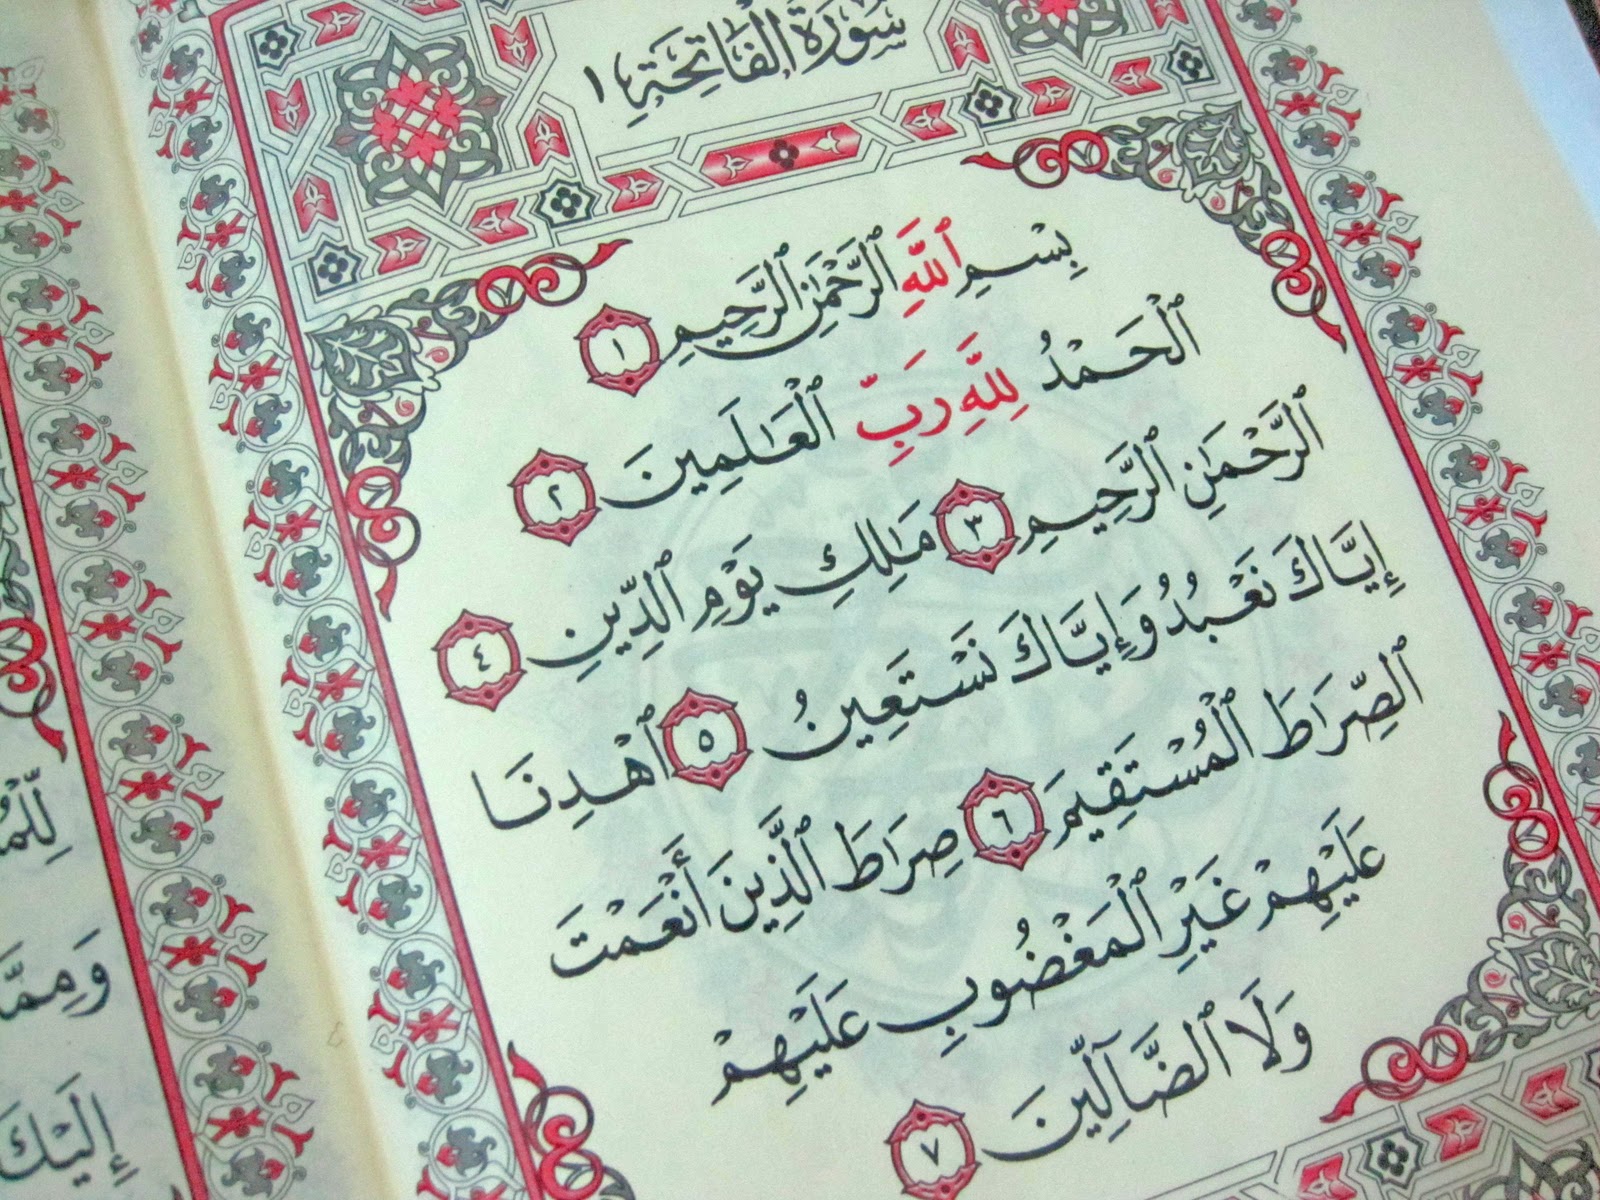 سُورَةُ الفَاتِحَةِ ١
بِسْمِ ٱللَّهِ ٱلرَّحْمَٰنِ ٱلرَّحِيمِ ١
ٱلْحَمْدُ لِلَّهِ رَبِّ ٱلْعَٰلَمِينَ ٢
ٱلرَّحْمَٰنِ ٱلرَّحِيمِ ٣ مَٰلِكِ يَوْمِ ٱلدِّينِ ٤
إِيَّاكَ نَعْبُدُ وَإِيَّاكَ نَسْتَعِينُ ٥ ٱهْدِنَا
ٱلصِّرَاطَ ٱلْمُسْتَقِيمَ ٦ صِرَاطَ ٱلَّذِينَ أَنْعَمْتَ
عَلَيْهِمْ غَيْرِ ٱلْمَغْضُوبِ عَلَيْهِمْ
وَلَا ٱلضَّآلِّينَ ٧
وَمِمَّا
إِلَيْكَ